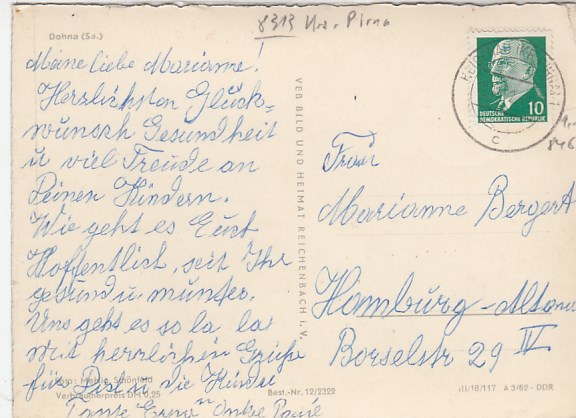 8313 Krs. Pirna
Dohna (Sa.)
Meine liebe Marianne!
Herzlichsten Glück-
wunsch Gesundheit
u viel Freude an
Deinen Kindern.
Wie geht es Euch
Hoffentlich, seit Ihr
gesund u. munter.
Uns geht es so la la
mit herzlichen Grüße
für die Kinder
Tante
VEB BILD UND HEIMAT REICHENBACH I. V.
DEUTSCHE
DEMOKRATISCHE REPUBLIK
10
c
Frau
Marianne Bergert
Hamburg-Altona
Borselstr 29 IV
Foto: Schönfeld
Verbraucherpreis DM 0,25
Best.-Nr. 12/2322
III/18/117 A 3/62 - DDR